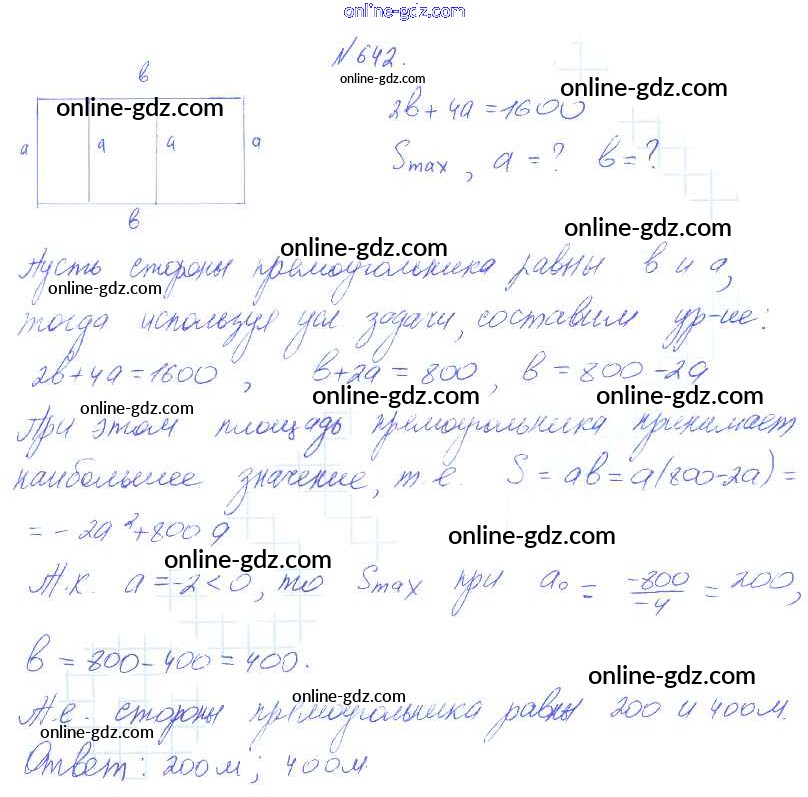 online-gdz.com
N 642.
online-gdz.com
в
online-gdz.com
online-gdz.com
2в + 4а = 1600
а а а а
Smax, а = ? в = ?
в
online-gdz.com
online-gdz.com
Пусть стороны прямоугольника равны в и а,
online-gdz.com
тогда используя усл. задачи, составим ур-ие:
online-gdz.com
2в + 4а = 1600, в + 2а = 800, в = 800 - 2а
online-gdz.com
online-gdz.com
online-gdz.com
При этом площадь прямоугольника принимает
наибольшее значение, т.е. S = ав = а(800-2а) =
= - 2а² + 800а
online-gdz.com
online-gdz.com
Т.к. а = -2 < 0, то Smax при а₀ = -800/-4 = 200,
в = 800 - 400 = 400.
online-gdz.com
online-gdz.com
Т.е. стороны прямоугольника равны 200 и 400м.
online-gdz.com
online-gdz.com
Ответ: 200м; 400м